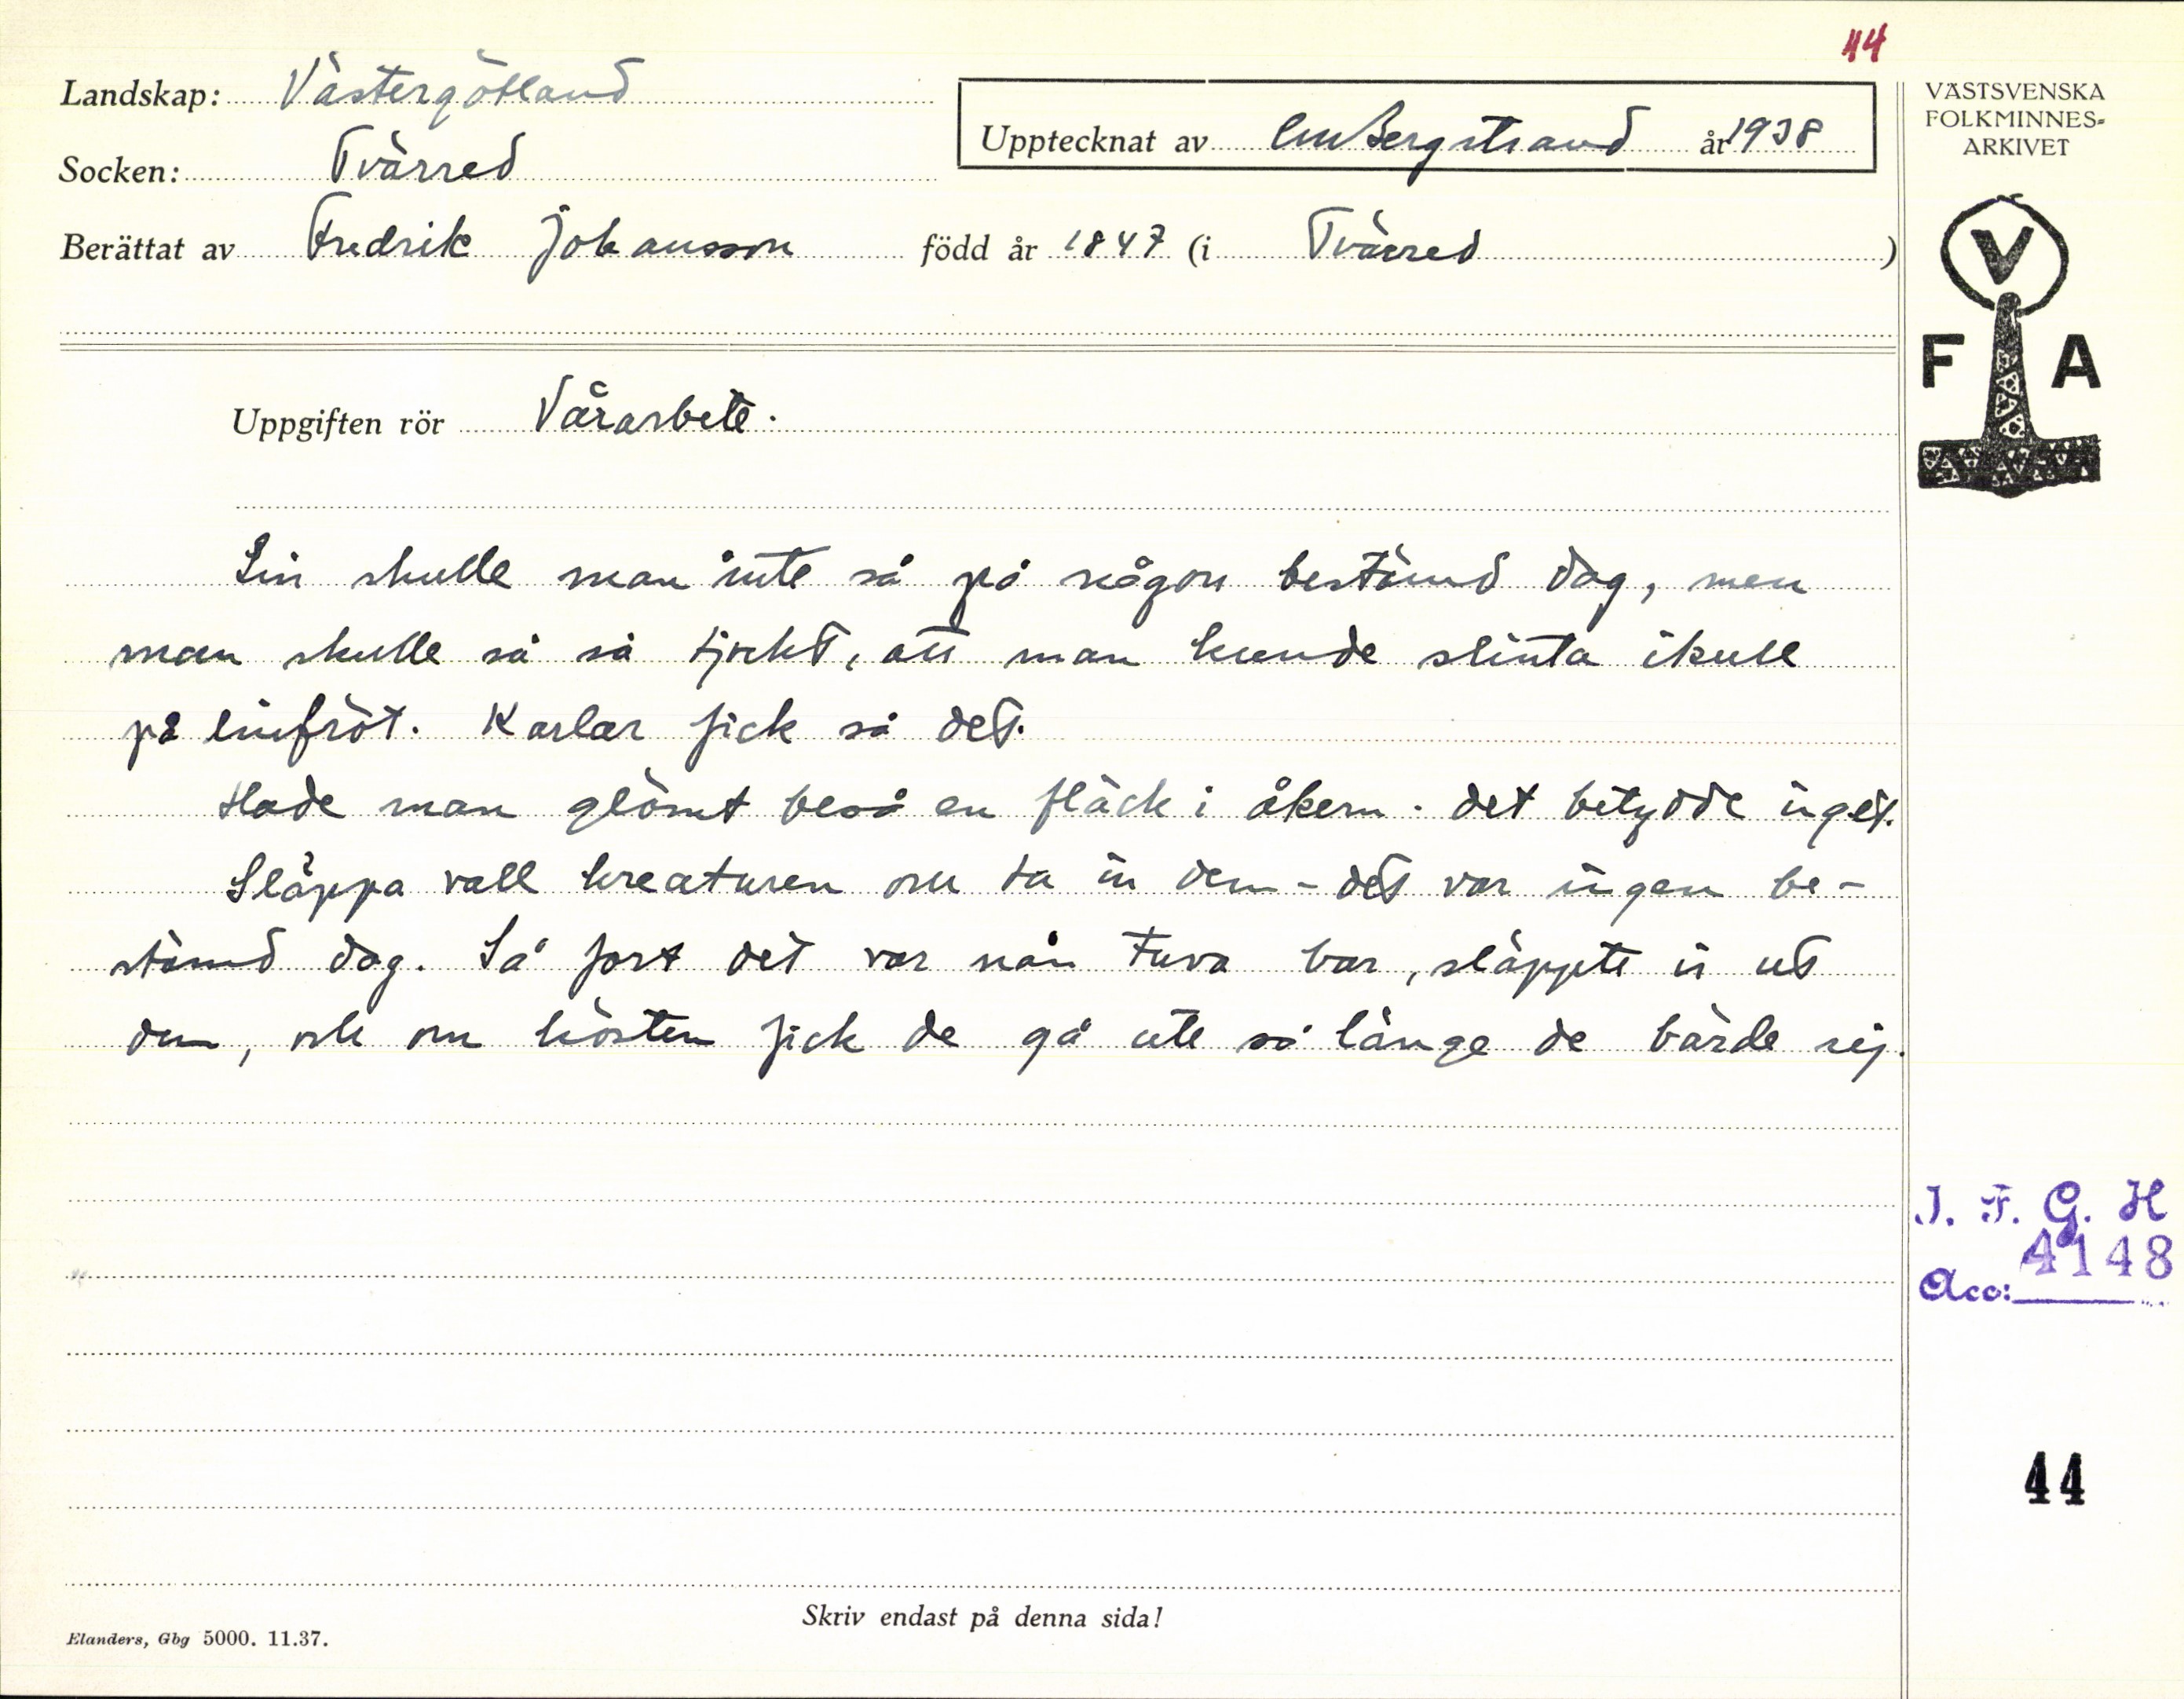 44
Landskap: Västergötland
Upptecknat av CM Bergstrand år 1938
Socken: Tvärred
Berättat av Fredrik Johansson född år 1847 (i Tvärred )
VÄSTSVENSKA
FOLKMINNES-
ARKIVET
V
F A
Uppgiften rör Vårarbete.
Lin skulle man inte så på någon bestämd dag, men
man skulle så så tjockt, att man kunde slinta ikull
på linfröt. Karlar fick så det.
Hade man glömt beså en fläck i åkern. det betydde inget.
Släppa vall kreaturen om ta in dem - det var ingen be-
stämd dag. Så fort det var nån tuva bar, släppte ut
dem, och om hösten fick de gå ute så länge de bärde sej.
I. F. G. H
4148
Acc:
44
Skriv endast på denna sida!
Elanders, Gbg 5000. 11.37.